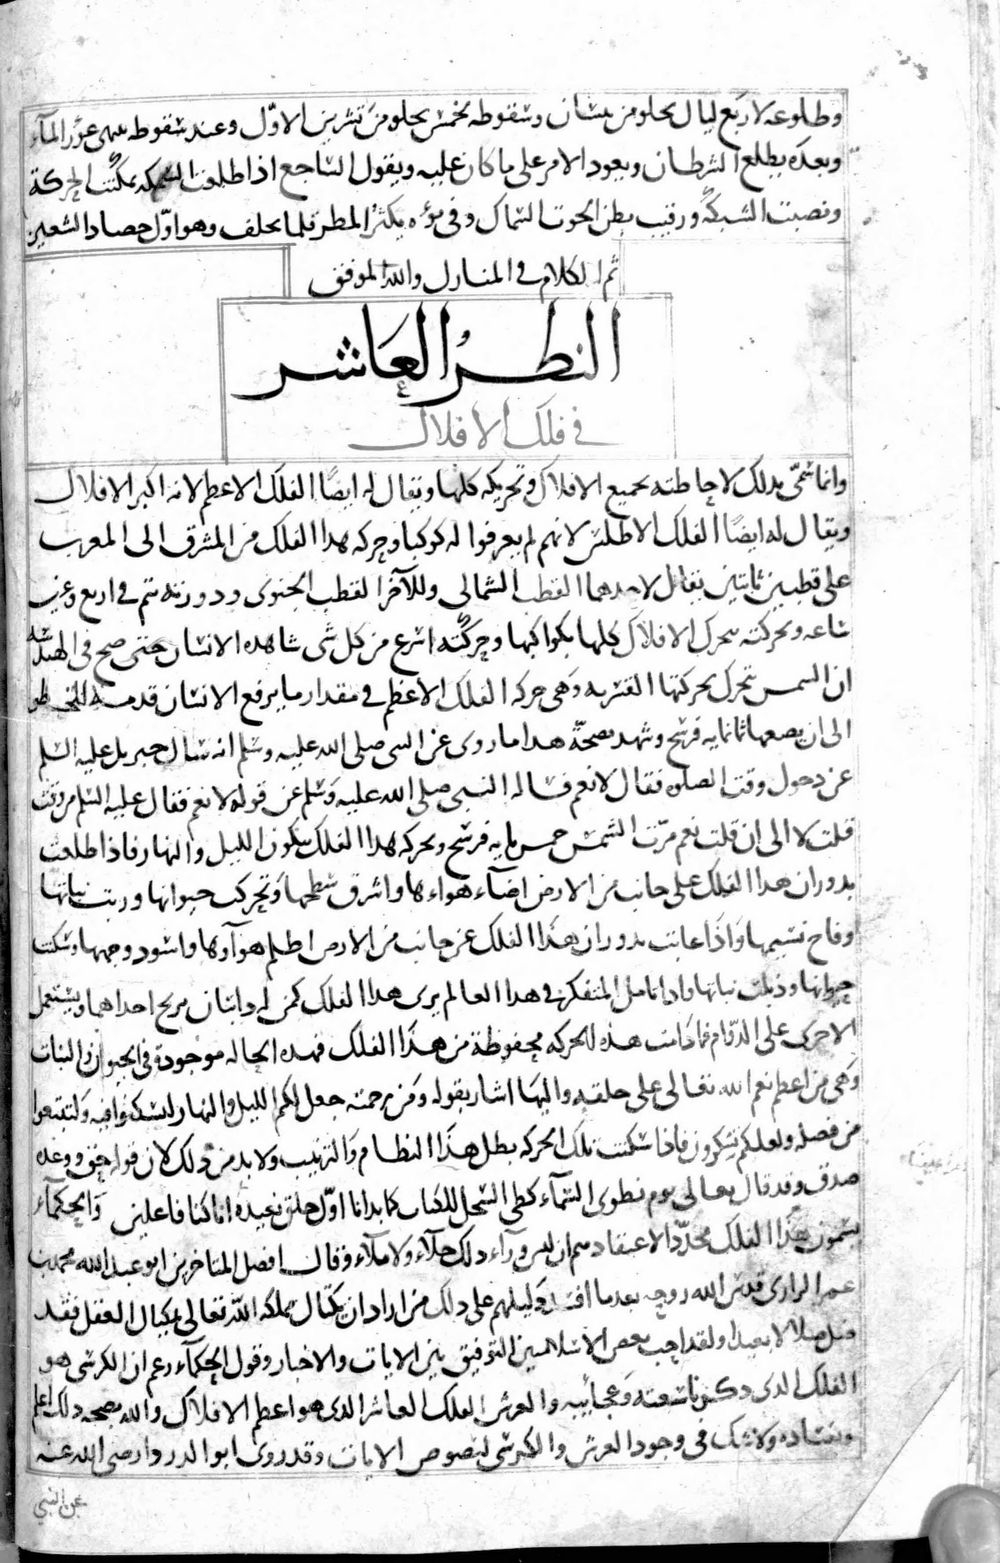 وطلوعه لاربع ليال يخلو من نيسان وسقوطه لخمس يخلو من تشرين الاول وعند سقوطه ينتهى غور المآء
وبعده يطلع الشرطان ويعود الامر على ما كان عليه ويقول الساجع اذا طلعت السمكه مكنت الحركة
ونصبت الشبكة ورقيب بطن الحوت السماك وفى نوءه يكثر المطر قلما يخلف وهو اول حصاد الشعير
تم الكلام فى المنازل والله الموفق
النظر العاشر
فى فلك الافلاك
وانما سمى بذلك لاحاطته بجميع الافلاك وتحريكه كلها ويقال له ايضًا الفلك الاعظم لانه اكبر الافلاك
ويقال له ايضًا الفلك الاطلس لانهم لم يعرفوا له كوكبا وحركة هذا الفلك من المشرق الى المغرب
على قطبين ثابتين يقال لاحدهما القطب الشمالى وللآخر القطب الجنوبى ودورته تتم فى اربع وعشرين
ساعه وبحركته يتحرك الافلاك كلها بكواكبها وحركته اسرع من كل شى شاهده الانسان حتى صح فى الهندسه
ان الشمس تتحرك بحركتها القسريه وهى حركه الفلك الاعظم فى مقدار ما يرفع الانسان قدمه للخطو
الى ان يضعها ثمانمايه فرسخ وشهد بصحة هذا ما روى عن النبى صلى الله عليه وسلم انه سال جبريل عليه السلم
عن دخول وقت الصلوه فقال لا نعم فساله النبى صلى الله عليه وسلم عن قوله لا نعم فقال عليه السلم من وقت
قلت لا الى ان قلت نعم مرت الشمس خمس مايه فرسخ وبحركه هذا الفلك يكون الليل والنهار فاذا طلعت
بدوران هذا الفلك على جانب من الارض اضآء هواءها واشرق سطحها وتحركت حيوانها وربت نباتها
وفاح نسيمها واذا غابت بدوران هذا الفلك عن جانب من الارض اظلم هوآوها واسود وجهها وسكنت
حيوانها وذبلت نباتها واذا تامل المتفكر فى هذا العالم يرى هذا الفلك كمن له دابتان يريح احداهما ويستعمل
الاخرى على الدوام فما دامت هذه الحركه محفوظة من هذا الفلك فهذه الحاله موجودة فى الحيوان والنبات
وهى من اعظم نعم الله تعالى على خلقه واليها اشار بقوله ومن رحمته جعل لكم الليل والنهار لتسكنوا فيه ولتبتغوا
من فضله ولعلكم تشكرون فاذا سكنت تلك الحركه بطل هذا النظام والترتيب ولا بد من ذلك لان قوله حق ووعده
صدق وقد قال تعالى يوم نطوى السمآء كطى السجل للكتاب كما بدانا اول خلق نعيده انا كنا فاعلين والحكمآء
يسمون هذا الفلك محددًا لاعتقادهم ان ليس ورآء ذلك خلآء ولا ملآء وقال افضل المتاخرين ابو عبد الله محمد بن
عمر الرازى قدس الله روحه بعد ما افسد دليلهم على ذلك من اراد ان يكتال مملكه الله تعالى بمكيال العقل فقد
ضل ضلالا بعيدا ولقد احب بعض الاسلاميين التوفيق بين الايات والاخبار وقول الحكمآء زعم ان الكرسى هو
الفلك الذى ذكرنا سعته وعجايبه والعرش الفلك العاشر الذى هو اعظم الافلاك والله بصحه ذلك اعلم
وفساده ولا شك فى وجود العرش والكرسى لنصوص الايات وقد روى ابو الدردا رضى الله عنه
عن النبى